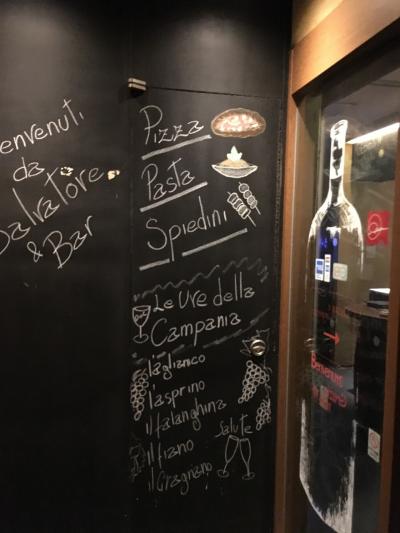 Benvenuti
da
Salvatore
& Bar
Pizza
Pasta
Spiedini
Le Uve della
Campania
l'aglianico
l'asprino
il falanghina
il fiano
il Gragnano
Salute
Benvenuti